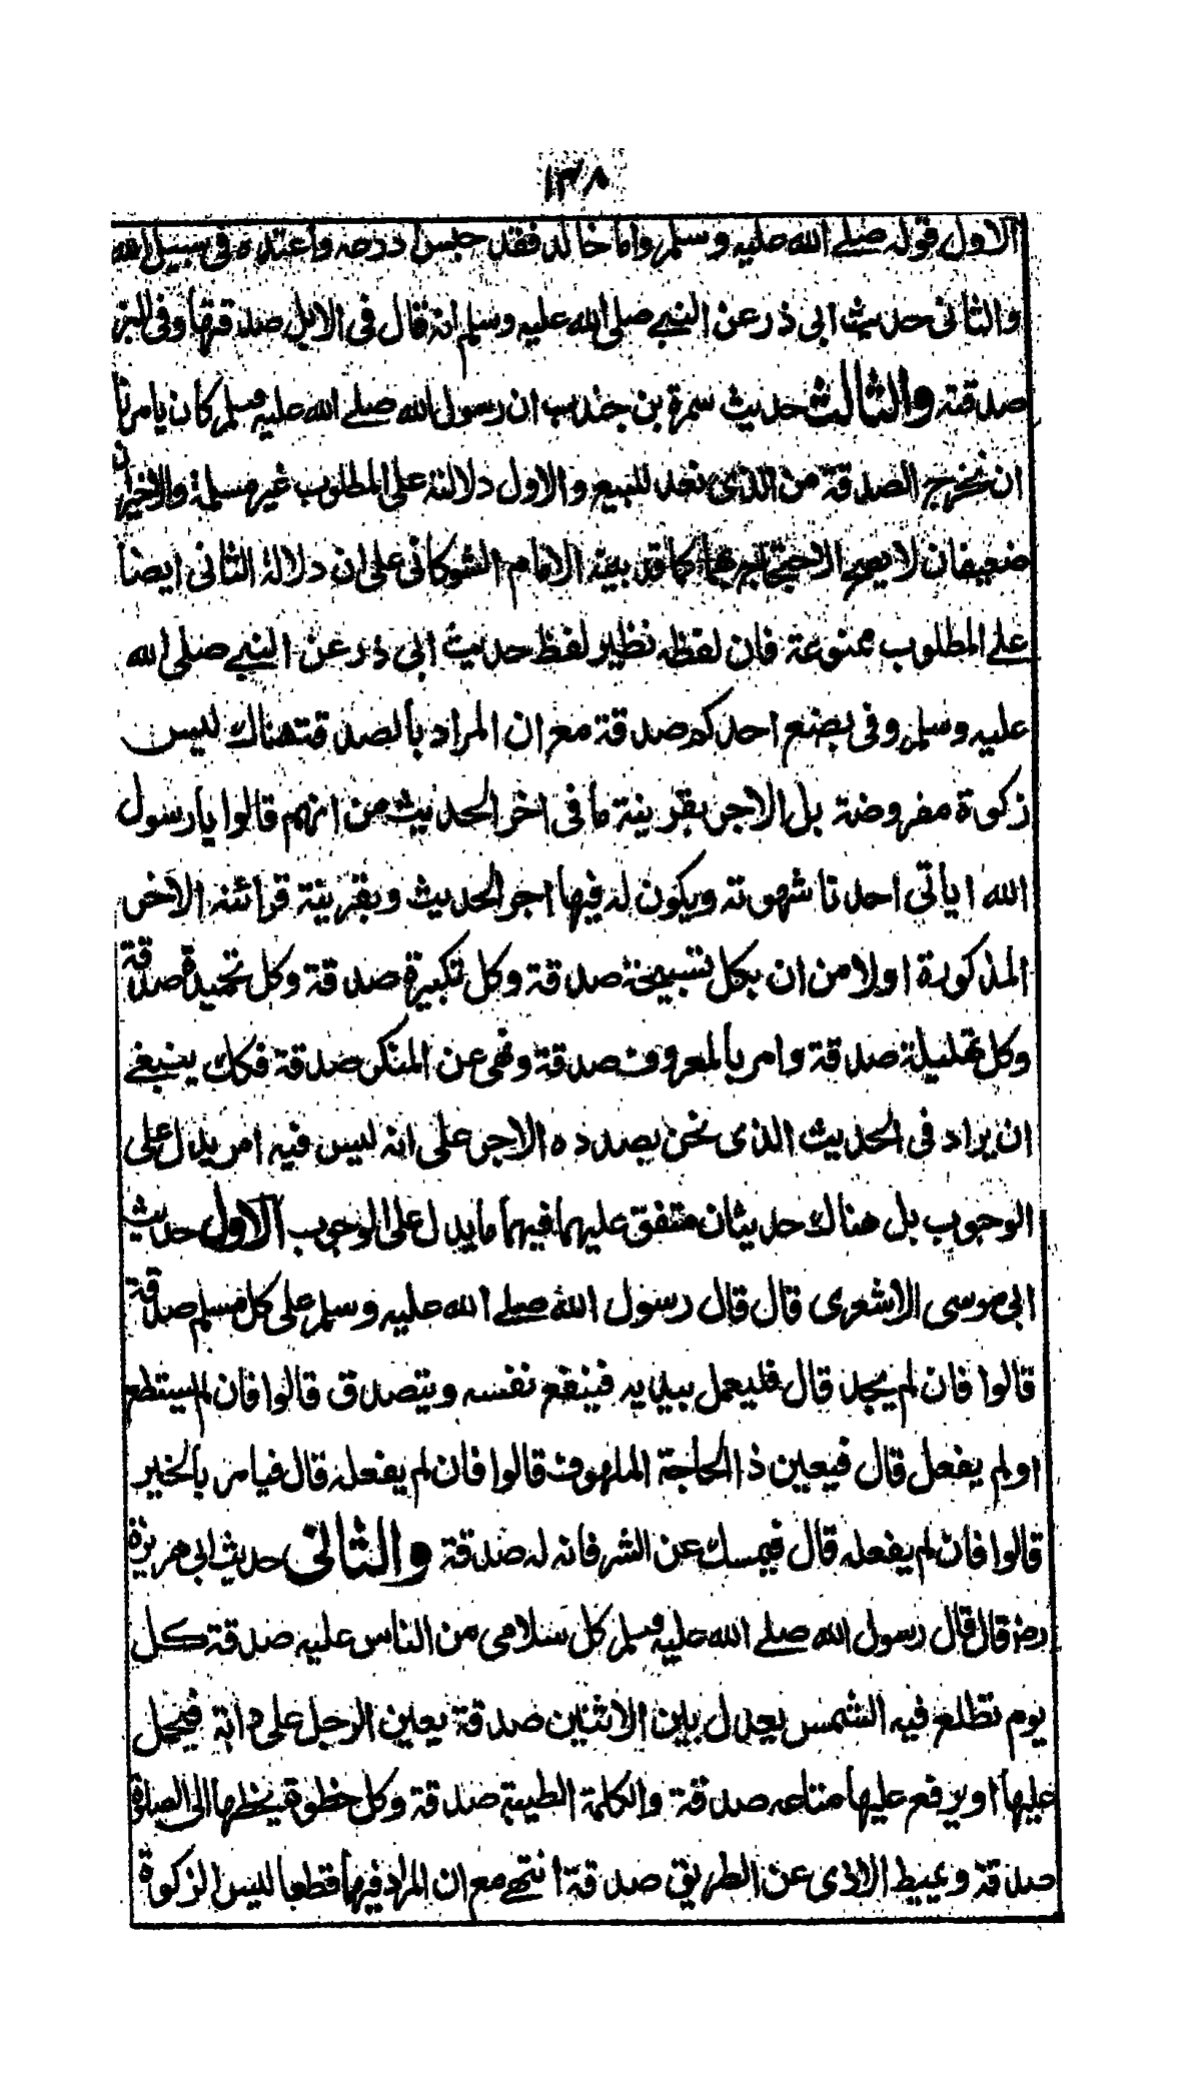 ١٣٨
الاول قوله صلے الله عليه وسلم واما خالد فقد حبس ادرعه واعتده فى سبيل الله
والثانى حديث ابى ذر عن النبے صلى الله عليه وسلم انه قال فى الابل صدقتها وفى البز
صدقته والثالث حديث سمرة بن جندب ان رسول الله صلے الله عليه وسلم كان يامرنا
ان نخرج الصدقة من الذى نعد للبيع والاول دلالته على المطلوب غير مسلمة والاخيران
ضعيفان لا يصح الاحتجاج بهما كما قد بينه الامام الشوكانى على ان دلالة الثانى ايضا
علے المطلوب ممنوعة فان لفظه نظير لفظ حديث ابى ذر عن النبے صلى الله
عليه وسلم وفى بضع احدكم صدقة مع ان المراد بالصدقة هناك ليس
زكوة مفروضة بل الاجر بقرينة ما فى اخر الحديث من انهم قالوا يا رسول
الله اياتى احدنا شهوته ويكون له فيها اجر الحديث وبقرينة قرائنه الاخر
المذكورة اولا من ان بكل تسبيحة صدقة وكل تكبيرة صدقة وكل تحميدة صدقة
وكل تهليلة صدقة وامر بالمعروف صدقة ونهى عن المنكر صدقة فكك ينبغے
ان يراد فى الحديث الذى نحن بصدده الاجر على انه ليس فيه امر يدل على
الوجوب بل هناك حديثان متفق عليهما فيهما ما يدل على الوجوب الاول حديث
ابى موسى الاشعرى قال قال رسول الله صلے الله عليه وسلم على كل مسلم صدقة
قالوا فان لم يجد قال فليعمل بيديه فينفع نفسه ويتصدق قالوا فان لم يستطع
او لم يفعل قال فيعين ذا الحاجة الملهوف قالوا فان لم يفعله قال فيامر بالخير
قالوا فان لم يفعله قال فيمسك عن الشر فانه له صدقة والثانى حديث ابى هريرة
رض قال قال رسول الله صلے الله عليه وسلم كل سلامى من الناس عليه صدقة كل
يوم تطلع فيه الشمس يعدل بين الاثنين صدقة يعين الرجل على دابته فيحمل
عليها او يرفع عليها متاعه صدقة والكلمة الطيبة صدقة وكل خطوة يخطها الى الصلوة
صدقة ويميط الاذى عن الطريق صدقة انتهے مع ان المراد فيهما قطعا ليس الزكوة